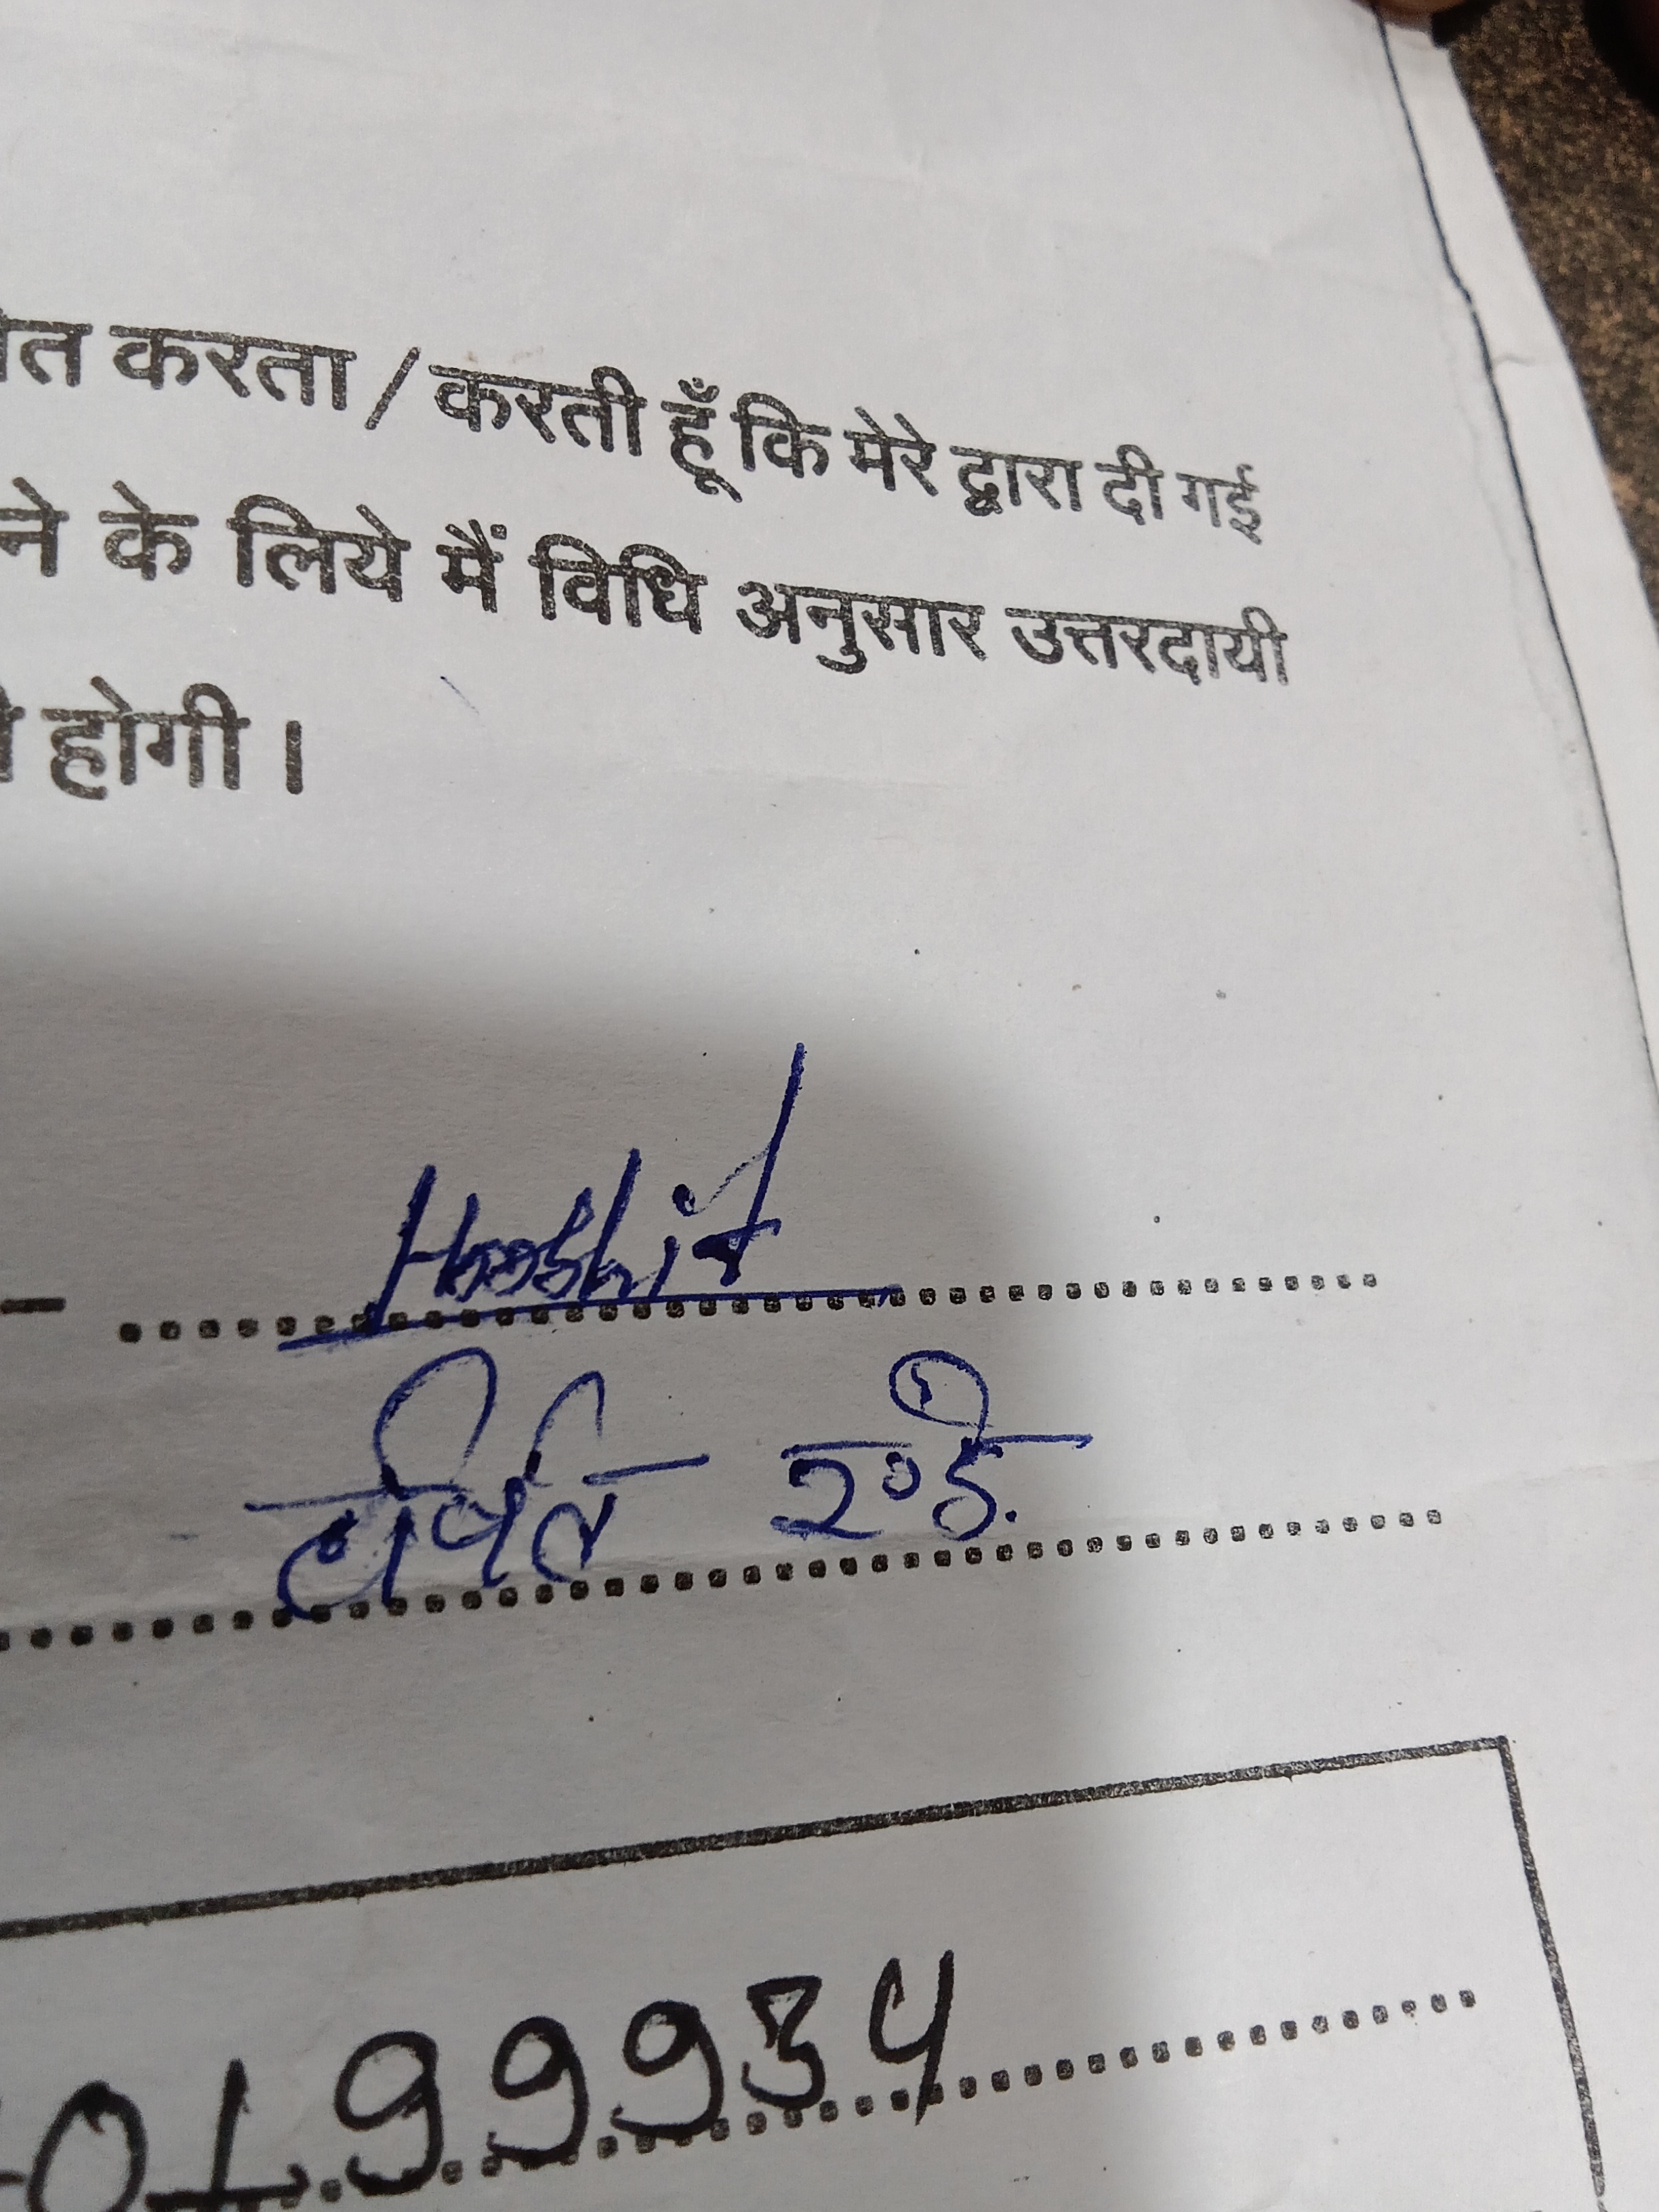 त करता / करती हूँ कि मेरे द्वारा दी गई
ने के लिये मैं विधि अनुसार उत्तरदायी
होगी।
Harshit
हर्षित
0199934